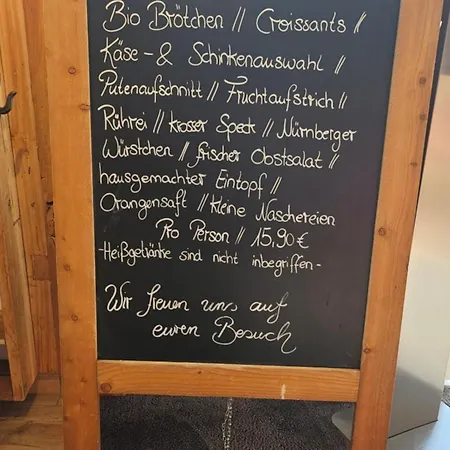 Bio Brötchen // Croissants //
Käse- & Schinkenauswahl //
Putenaufschnitt // Fruchtaufstrich //
Rührei // krosser Speck // Nürnberger
Würstchen // frischer Obstsalat //
hausgemachter Eintopf //
Orangensaft // kleine Naschereien
Pro Person // 15,90€
-Heißgetränke sind nicht inbegriffen-
Wir freuen uns auf
euren Besuch